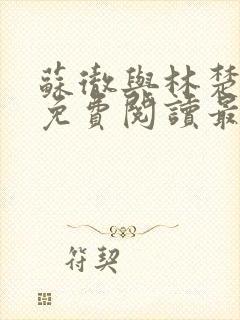 蘇徹與林楚
免費閱讀最
符契